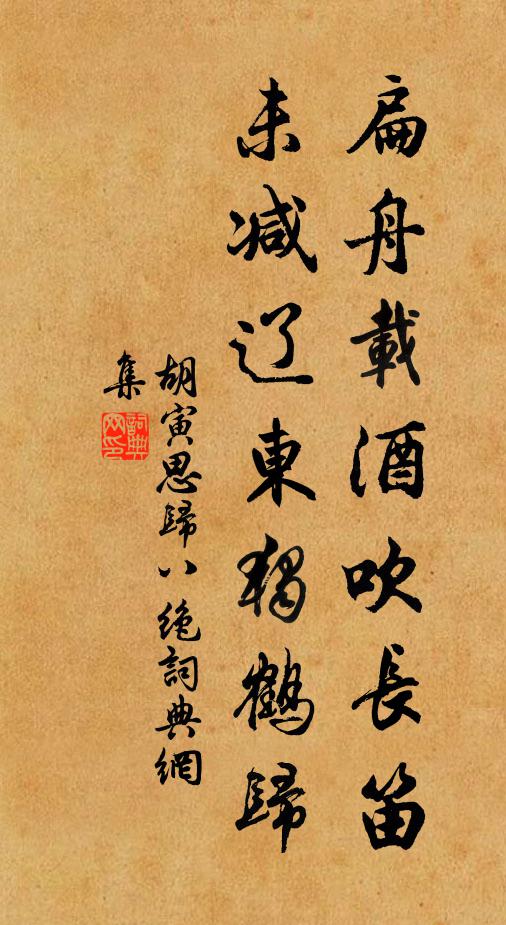 扁舟載酒吹長笛
未减辽東獨鶴歸
胡寅思歸八絶詞典網
集
詞典
网印